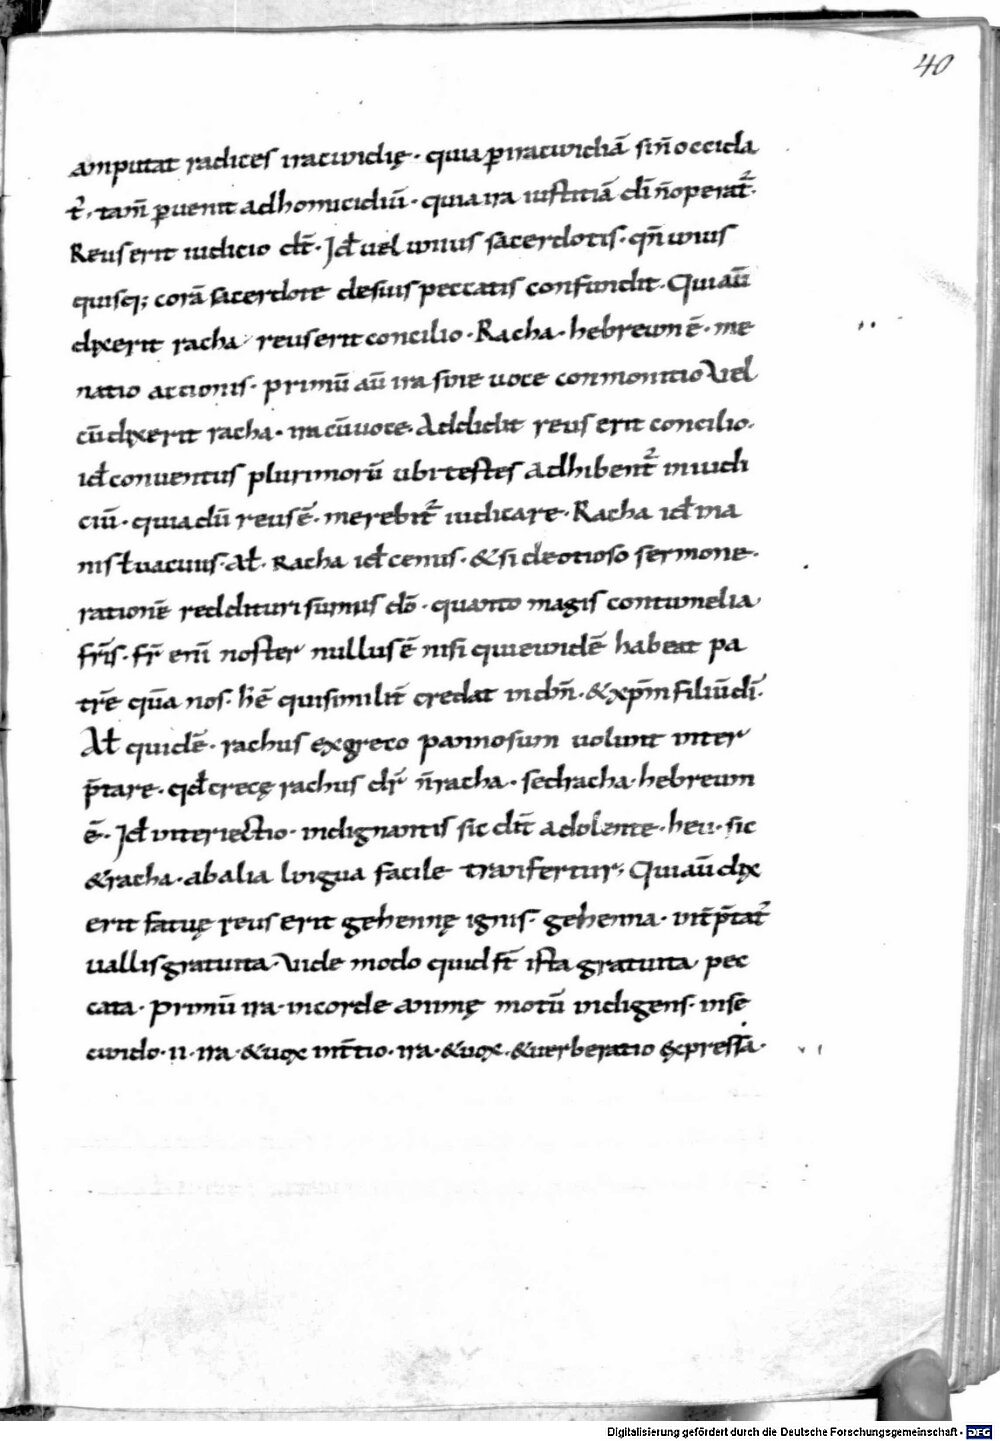 40
amputat radices iracundię · quia ꝑiracundiã siñ occida
t᷒ · tam̃ ꝑuenit adhomicidiũ · quia ira iustitiã dĩ ñoperat᷒ ·
Reus erit iudicio dt̃ · Id̃ uel unius sacerdotis · qñ unus
quisq; corã sacerdote desuis peccatis confundit · Quiaũ
dixerit racha reus erit concilio · Racha · hebreum ẽ · me
natio actionis · primũ aũ ira sine uoce conmonitio Vel
cũdixerit racha · ira cũuoce · Addidit reus erit concilio ·
id̃ conuentus plurimorũ ubi testes adhibent᷒ iniudi
ciũ · quia dũ reus ẽ · merebit᷒ iudicare · Racha id̃ ina
nis ł uacuus · Al̃ · Racha id̃ cenus · & si deotioso sermone ·
rationẽ reddituri sumus dõ · quanto magis contumelia
fr̃is · fr̃ enĩ noster nullus ẽ nisi quieundẽ habeat pa
tr̃e qũa nos · h̃ẽ quisimilit̃ credat indñ · & xp̃m filiũ dĩ ·
Al̃ quidẽ · rachus exgreco pannosum uolunt inter
p̃tare · qd̃ crecę rachus dr̃ ñracha · sedracha · hebreum
ẽ · Id̃ interiectio · indignantis sic dit̃ adolente · heu · sic
& racha · abalia lingua facile transfertur · Quiaũ dix
erit fatuę reus erit gehennę ignis · gehenna · int̃p̃tat᷒
uallis gratuita · Vide modo quid st̃ ista gratuita pec
cata · primũ ira · incorde animę motũ indigens · inse
cundo · ii · ira · & uox int̃tio · ira · & uox · & uerberatio expressa ·
Digitalisierung gefördert durch die Deutsche Forschungsgemeinschaft - DFG